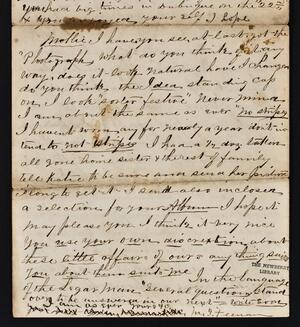 you had big times in Dubuque on the 22nd
& you enjoyed yourself I hope
Mollie I have you see at last got the
"Photograph" What do you think of it any
way, does it look natural have I changed
do you think the Idea standing cap
on, I look sorter festive Never mind
I am about the same as ever no stripes
I havent worn any for nearly a year dont in
tend to not "Stripes" I had a ½ doz taken
all gone home sister & the rest of family
tell Katie to be sure and send her picture
I long to get it I send also inclosed
a selection for your Album I hope it
may please you I think it very nice
You use your own discression about
these little affairs of ours any thing suits
you then suits me In the language
of the Sugar Man General questions Stand
over to be answered in our next Write Soon
I am as ever yours &c
M, J, Feenan
THE NEWBERRY
LIBRARY